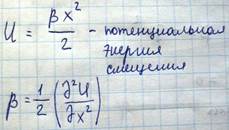 U = βx²/2 - потенциальная
энергия
смещения
β = 1/2 (∂²U/∂x²)